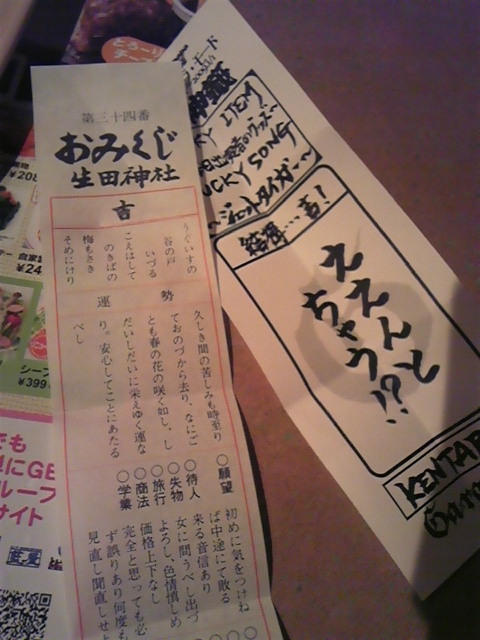 第三十四番
おみくじ
生田神社
吉
うぐいすの
谷の戸
いづる
こえはして
のきばの
梅もさき
そめにけり
運勢
久しき間の苦しみも時至り
ておのづから去り、なにご
とも春の花の咲く如し、し
だいしだいに栄えゆく運な
り。安心してことにあたる
べし
○願望 初めに気をつけね
ば中途にて敗る
○待人 来る音信あり
○失物 女に問うべし出づ
○旅行 よろし、色情慎しめ
○商法 価格上下なし
○学業 完全と思っても必
ず誤りあり何度も
見直し聞直しせよ
モード
LUCKY ITEM
LUCKY SONG
〜ジェットタイガー〜
結果…吉!
ええんと
ちゃう!?
KENTAR
とろーり
チーズ
¥208
自家製
¥24
シーフ
¥399
でも
単にGE
ループ
サイト